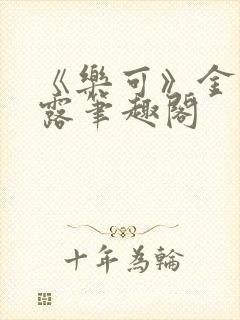 《樂可》金
露筆趣閣
十年為輪